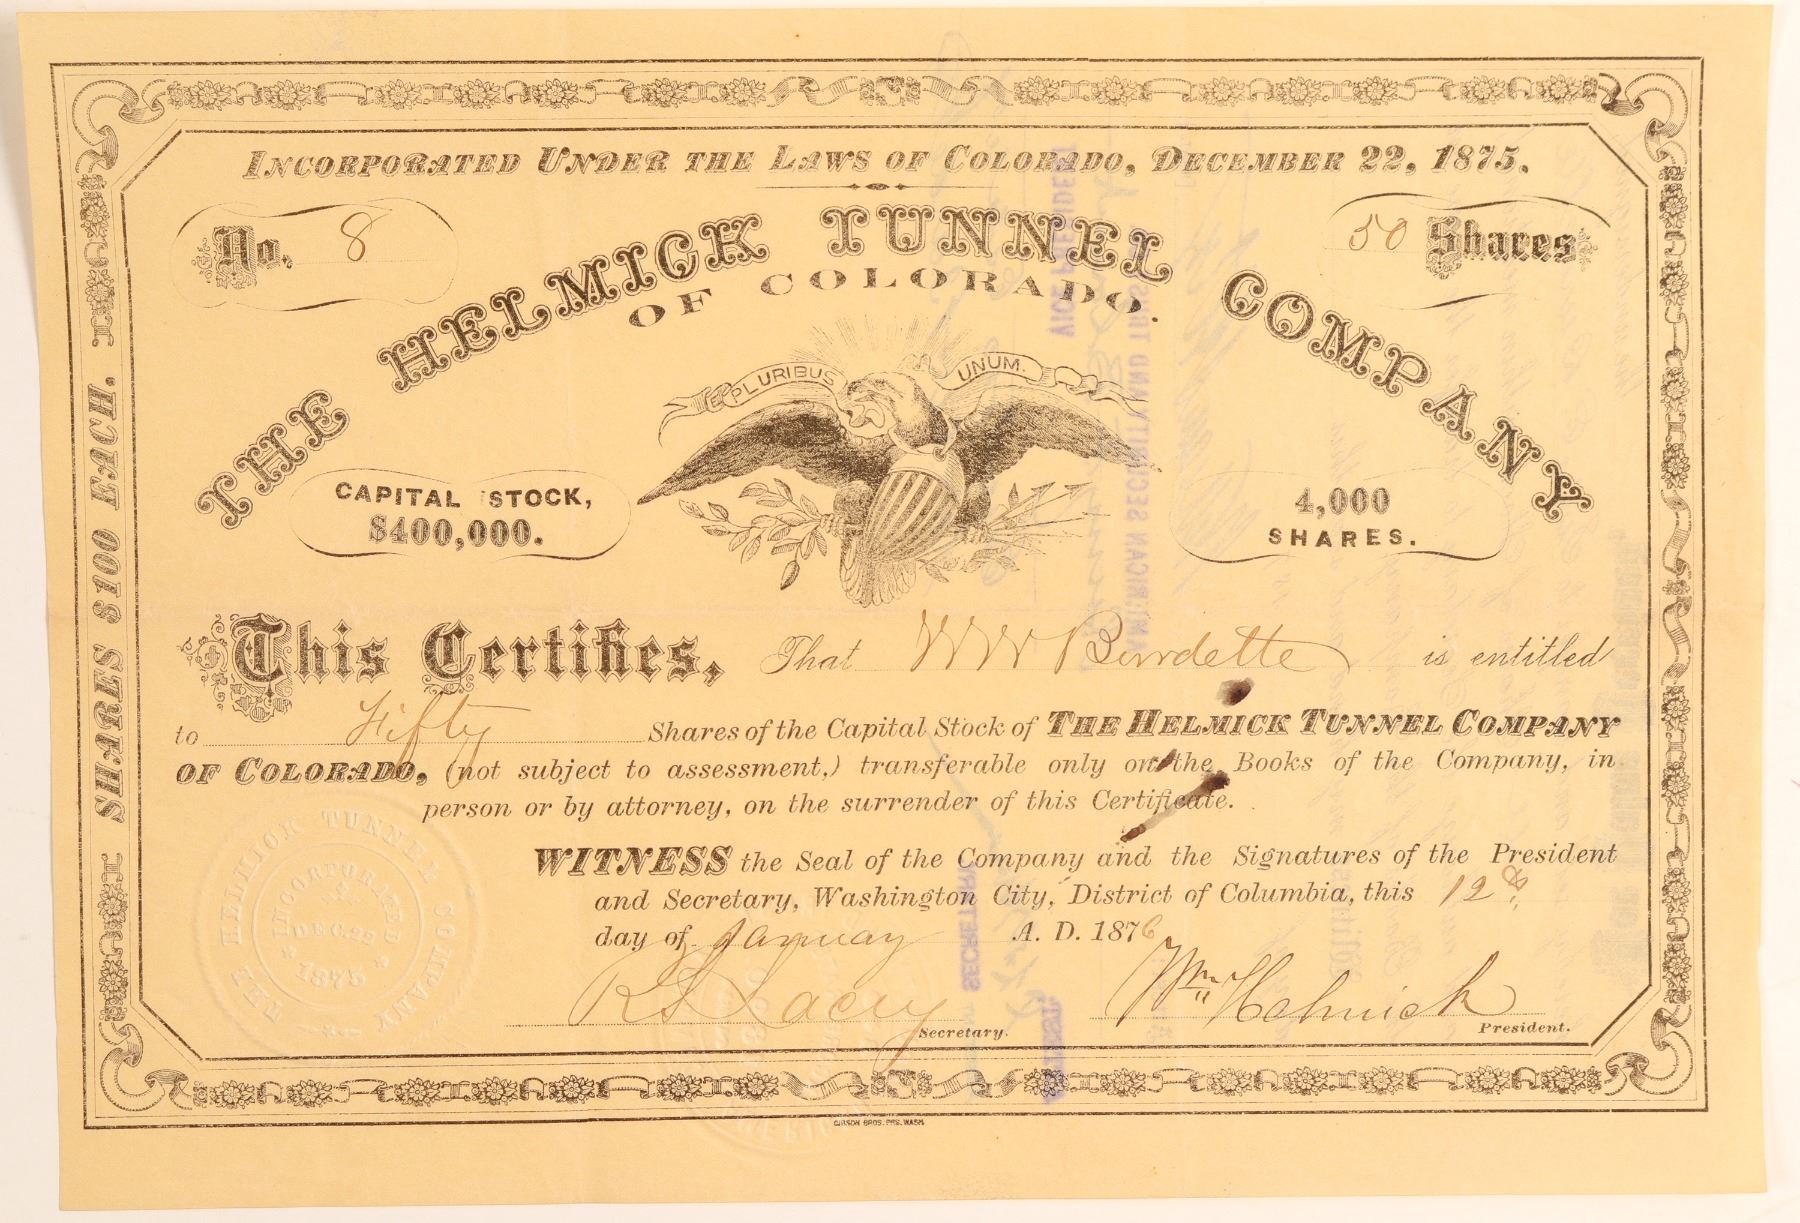 INCORPORATED UNDER THE LAWS OF COLORADO, DECEMBER 22, 1875.
No. 8
50 Shares
THE HELMICK TUNNEL COMPANY
OF COLORADO.
E PLURIBUS UNUM.
CAPITAL STOCK,
$400,000.
4,000
SHARES.
SHARES $100 EACH.
This Certifies, That W W Burdette is entitled
to Fifty Shares of the Capital Stock of THE HELMICK TUNNEL COMPANY
OF COLORADO, (not subject to assessment,) transferable only on the Books of the Company, in
person or by attorney, on the surrender of this Certificate.
WITNESS the Seal of the Company and the Signatures of the President
and Secretary, Washington City, District of Columbia, this 12th
day of January A. D. 1876
R S Lacey
Secretary.
Wm Helmick
President.
THE HELMICK TUNNEL COMPANY
INCORPORATED
DEC. 22
1875
GIBSON BROS. PRS. WASH.
VICE PRESIDENT
AMERICAN SECURITY AND TRUS
SECRETARY